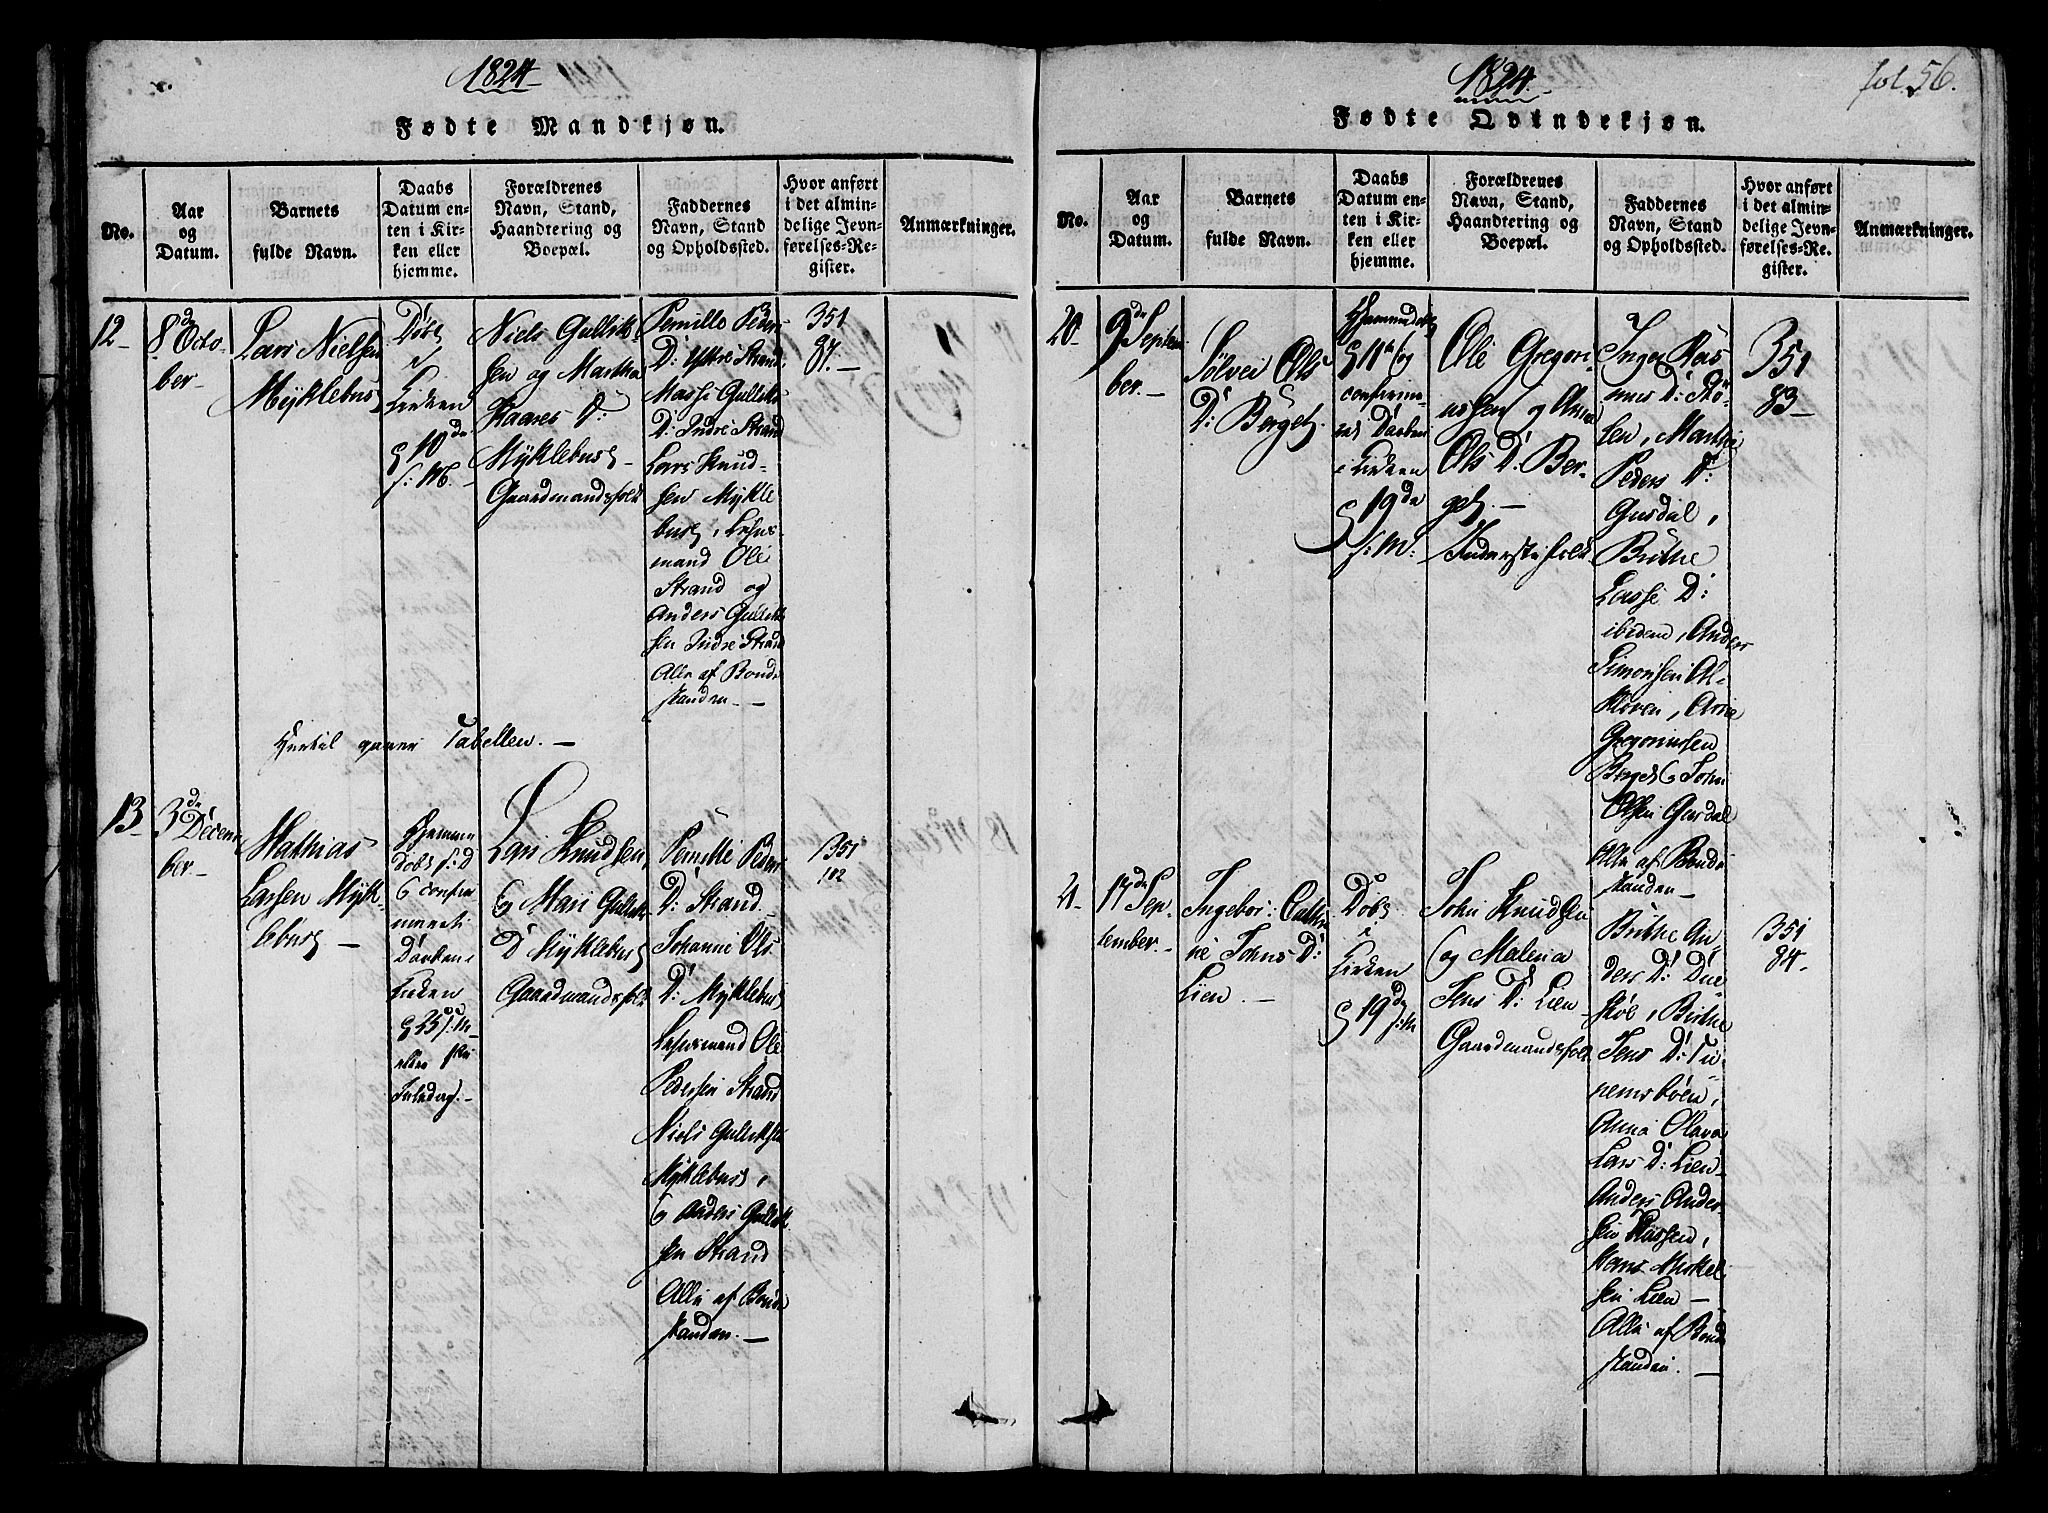 1824
Fødte Mandkjøn.
No.
Aar
og
Datum.
Barnets
fulde Navn.
Daabs
Datum en-
ten i Kir-
ken eller
hjemme.
Forældrenes
Navn, Stand,
Haandtering og
Boepæl.
Faddernes
Navn, Stand
og Opholdssted.
Hvor anført
i det almin-
delige Jevn-
førelses-Re-
gister.
Anmærkninger.
12
8de Octo-
ber
Lars Nielsen
Myklebust
Døbt
i
Kirken
d 10de
s: M.
Niels Gulliks-
sen og Martha
Kaares D:
Myklebust
Gaardmandsfolk
Pernille Peders
D: Yttre Strand
Masse Gulliks
D: Indre Strand
Lars Knud-
sen Mykle
bust, Lehns-
mand Ole
Strand og
Anders Gulliks
sen Indre Strand
Alle af Bonde
standen
351
87.
Hertil gaaer Tabellen.
13
3de Decem-
ber
Mathias
Larsen Mykl-
ebust
Hjemme
døbt s: D
og confir-
meret
Daaben i
Kirken
d 25 s: M
Juledag.
Lars Knudsen
og Mari Gulliks
D Myklebust
Gaardmandsfolk
Pernille Peders
D: Strand
Johanne Ols
D: Myklebust
Lehnsmand Ole
Pedersen Strand
Niels Gulliksen
Myklebust,
og Anders Gulliks
sen Strand
Alle af Bonde
standen.
351
112
1824.
fol. 56.
Fødte Qvindekjøn.
No.
Aar
og
Datum.
Barnets
fulde Navn.
Daabs
Datum en-
ten i Kir-
ken eller
hjemme.
Forældrenes
Navn, Stand,
Haandtering og
Boepæl.
Faddernes
Navn, Stand
og Opholdssted.
Hvor anført
i det almin-
delige Jevn-
førelses-Re-
gister.
Anmærkninger.
20
9de Septem
ber.
Sølvei Ols
D: Berget
Hjemmedøbt
d 11te og
confirme-
ret Daaben
i Kirken
d 19de
s: M:
Ole Gregori
ussen og Anne
Ols D: Ber-
get.
Inderstefolk
Inger Ras
mus D: Stø-
len, Marthe
Peders D:
Gusdal,
Brithe
Lasse D:
ibidem, Anders
Simonsen Ol-
støren, Arne
Gregoriussen
Berget og John
Olsen Gusdal
Alle af Bonde
standen
351
83
21
17de Sep-
tember.
Ingebor: Cathri
ne Johns D:
Lien.
Døbt
i
Kirken
d 19de s: M
John Knudsen
og Malena
Jens D: Lien
Gaardmandsfolk
Brithe An-
ders D: Due
støl, Brithe
Jens D: Tu-
nemsbøen,
Anna Olava
Lars D: Lien
Anders Ander
sen Aasen,
Hans Mikkel
sen Lien
Alle af Bonde
standen.
351
84